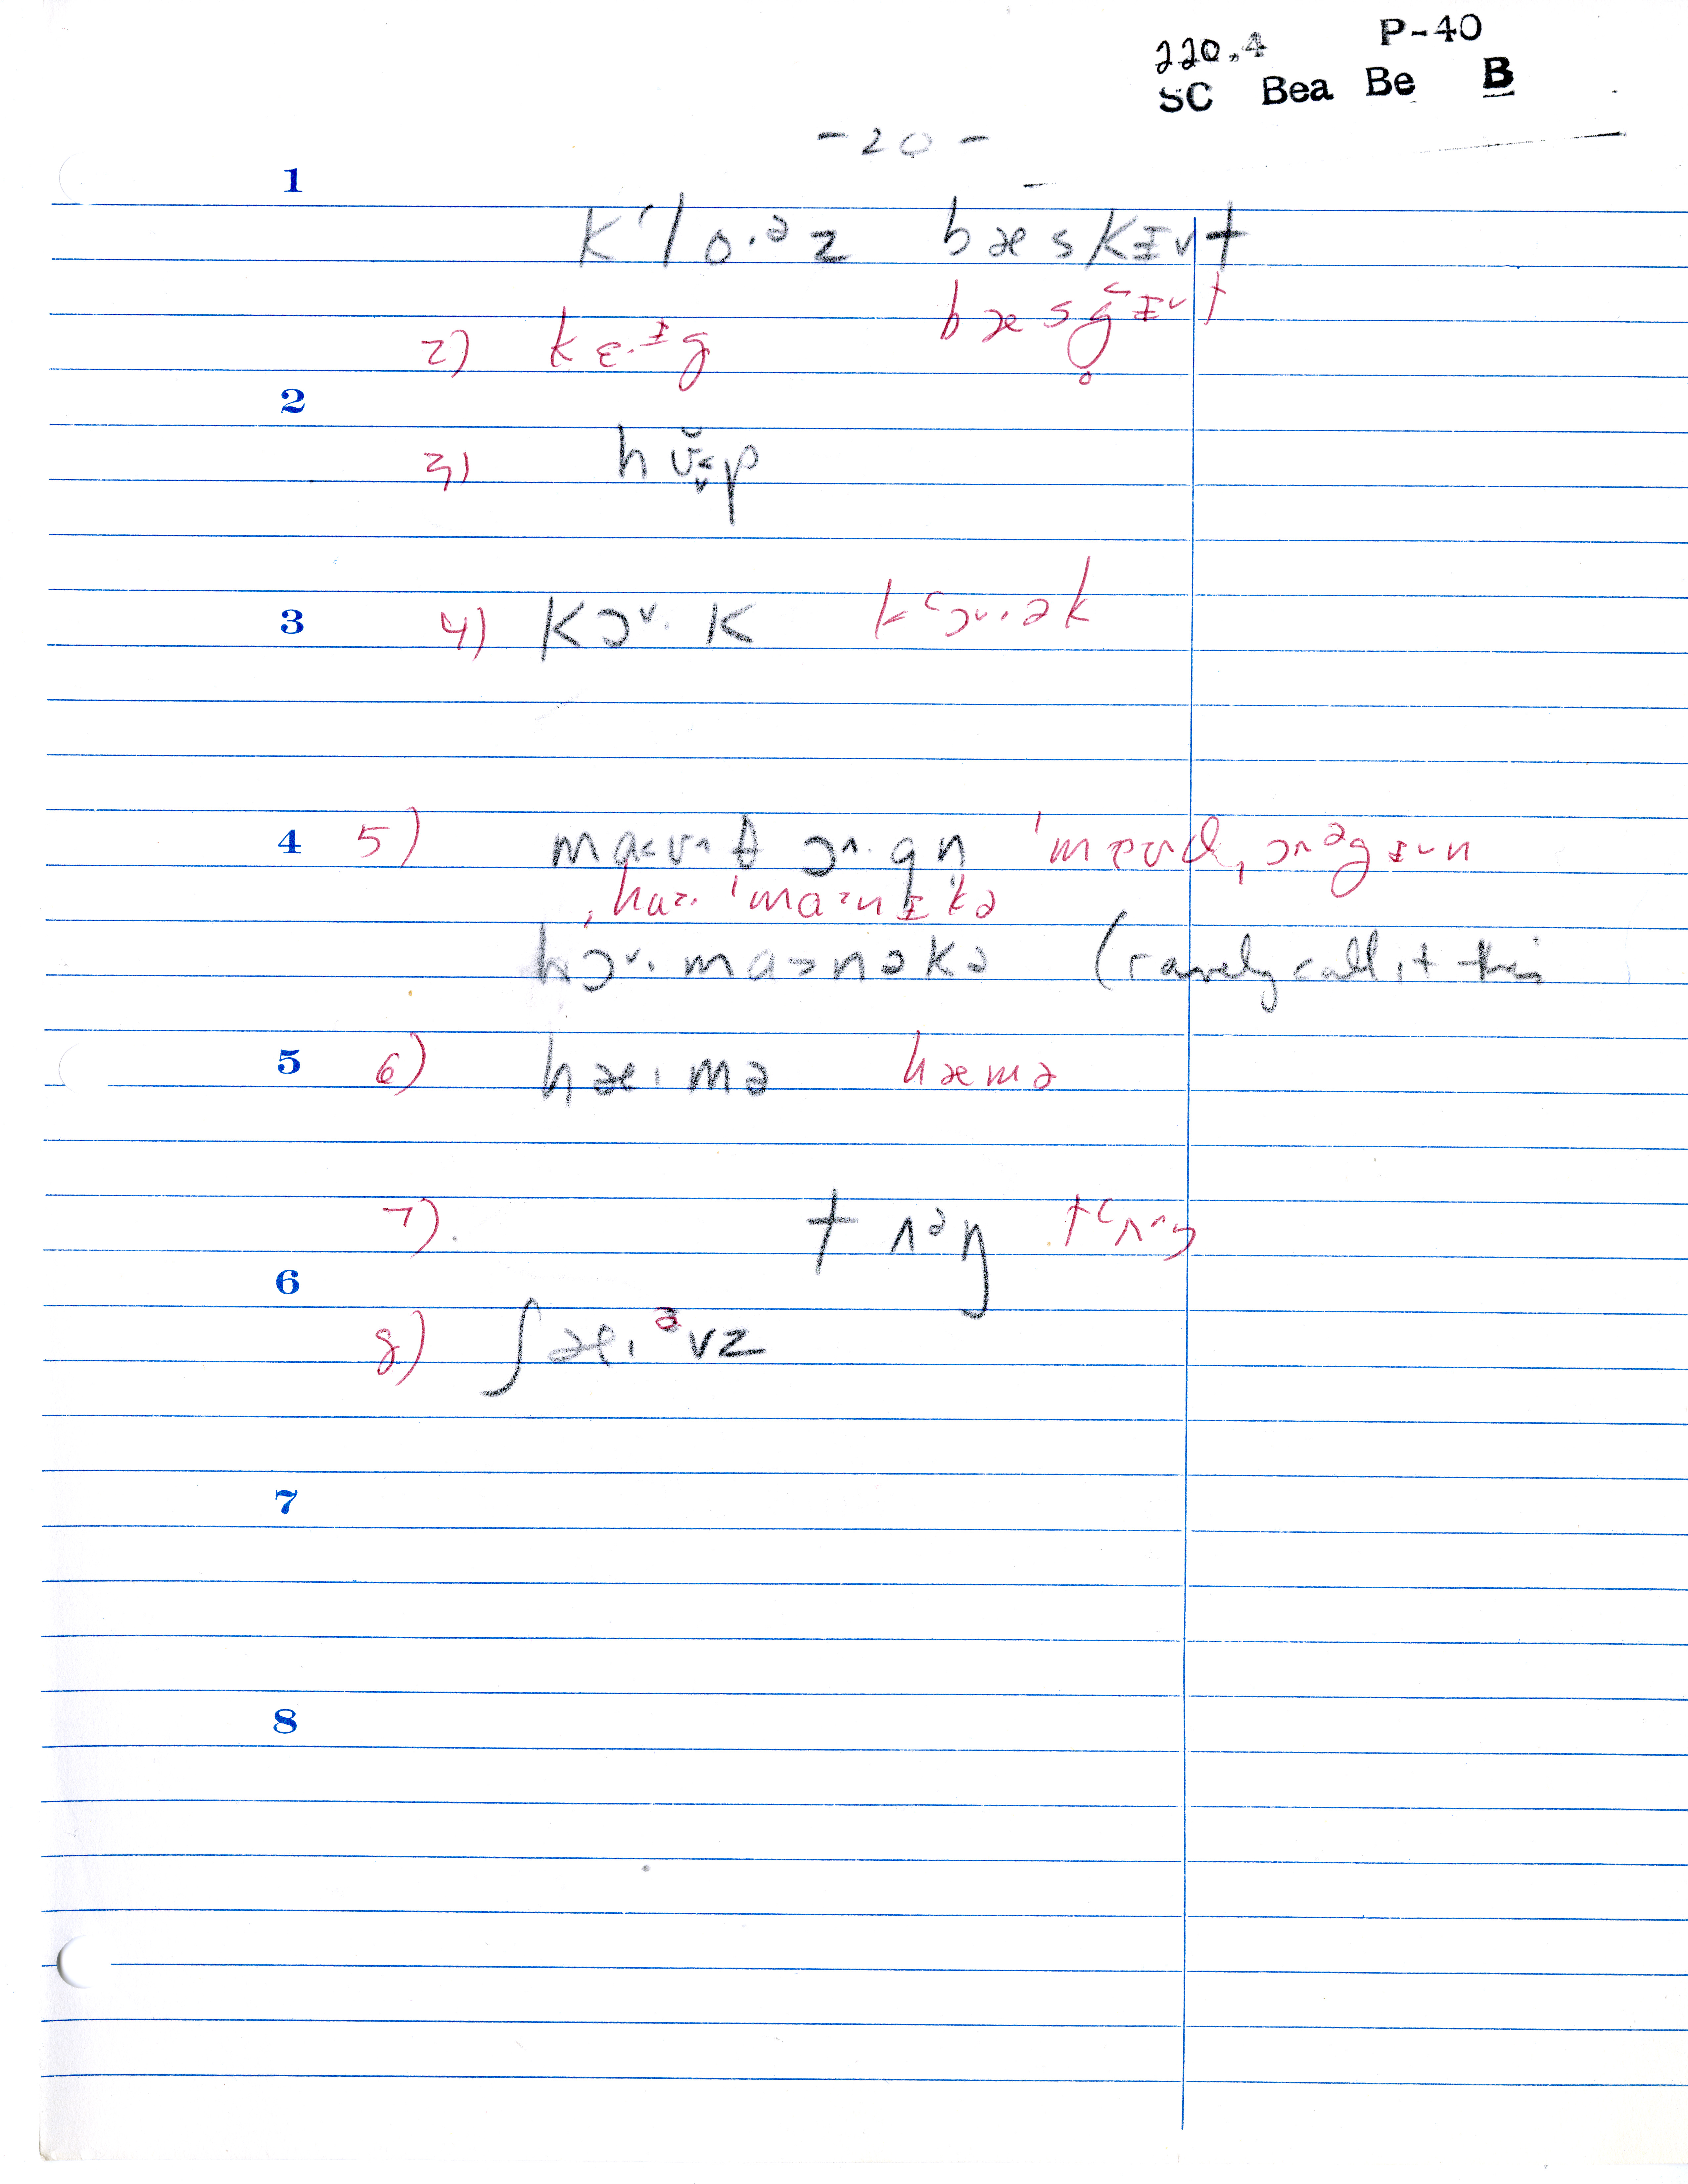 220.4 P-40
SC Bea Be B
- 20 -
1
kʻlo·ᵊz bæskɪ˅t
2) kɛ·ᶦg bæsg̊˂ɪ˅t
2
3) hʊ̆˂˅p
3 4) kɔ˅·k kʻɔ˅·ək
4 5) ma˂ʊ^θ ɔ^·gn̩ ˈmæʊθˌɔ^ᵊgɪ˅n
ˌha>·ˈma>nɪkə
hɔ˅·ma>nəkə (rarely call it this
5 6) hæ·mə hæmə
7) tʌᵊŋ tʻʌ^ŋ
6
8) ʃæ·ᵊvz
7
8